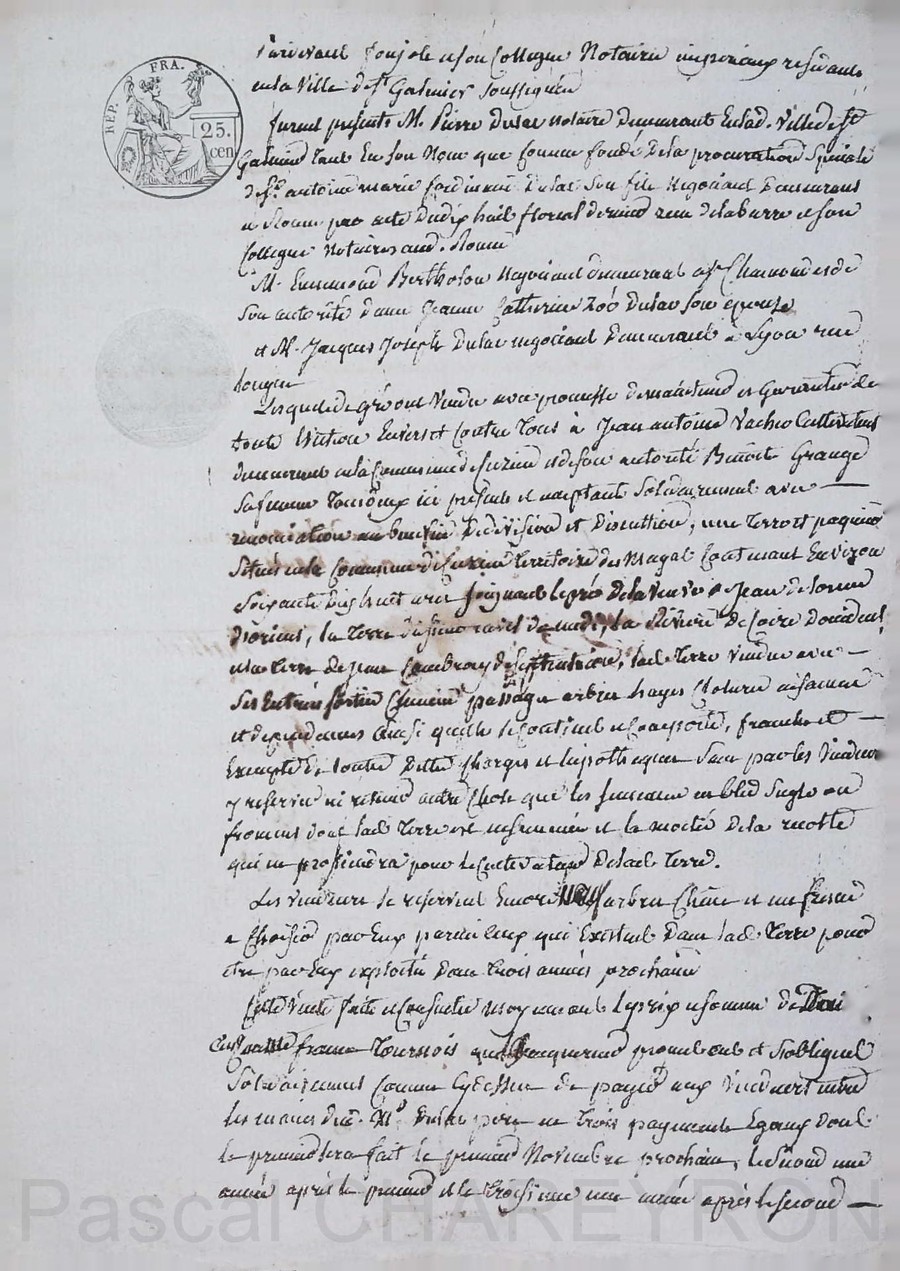 REP. FRA.
25.
cen
Pardevant Poujole et son Collegue Notaires imperiaux residants
en la Ville de St Galmier Soussignés
furent présents M. Pierre Dulac notaire Demeurant En lad. Ville de St
Galmier tant En Son Nom que comme fondé De la procuration Spéciale
de Sr. antoine marie Dulac Son fils négociant Demeurant
à par acte Du dix huit floréal dernier reçu delabarre et son
Collegue Notaires aud.
M. Ennemond Bertholon négociant demeurant à St Chamond et de
Son autorité dame Jeanne Catherine Zoé Dulac Son épouse
et M. Jacques Joseph Dulac négociant Demeurant à Lyon rue
longue
Lesquels de gré ont Vendu avec promesse de maintenue et Garantie de
toute Eviction Envers et Contre Tous à Jean antoine Cultivateur
demeurant en la Commune de et de son autorité Benoite Grange
Sa femme ici présents et acceptants Solidairement avec
renonciation au bénéfice De division et Discussion, une Terre et
Située en la Commune de territoire des Contenant Environ
Soixante Dix huit ares joignant le pré De la Veuve de Jean
D'orient, la Terre de midi, la Rivière De Loire D'occident
et la terre de Jean de Septentrion, lad. Terre Vendue avec
Ses Entrées Sorties Chemins passages arbres hayes Clotures aisances
et dépendances Ainsi qu'elle se Contient et Comporte, franche et
Exempte de toutes Dettes Charges et hypothèques Sans par les Vendeurs
y réserver ni retenir autre Chose que les semences en bled Seigle ou
froment dont lad. Terre est ensemencée et la moitié De la récolte
qui en proviendra pour le Cultivateur De lad. Terre.
Les vendeurs se réservent Encore arbres Chêne et un fresne
à Choisir par Eux parmi ceux qui Existent Dans lad. Terre pour
être par Eux exploités Dans trois années prochaines
Cette Vente faite et Consentie moyennant le prix et somme de Trois
cent francs Tournois que les acquéreurs promettent et S'obligent
Solidairement Comme Cy Dessus de payer aux Vendeurs entre
les mains dud. M. Dulac père en Trois payements Egaux Dont
le premier Sera fait le premier Novembre prochain, le Second une
année après le premier et le troisième une année après le Second
Pascal CHAREYRON